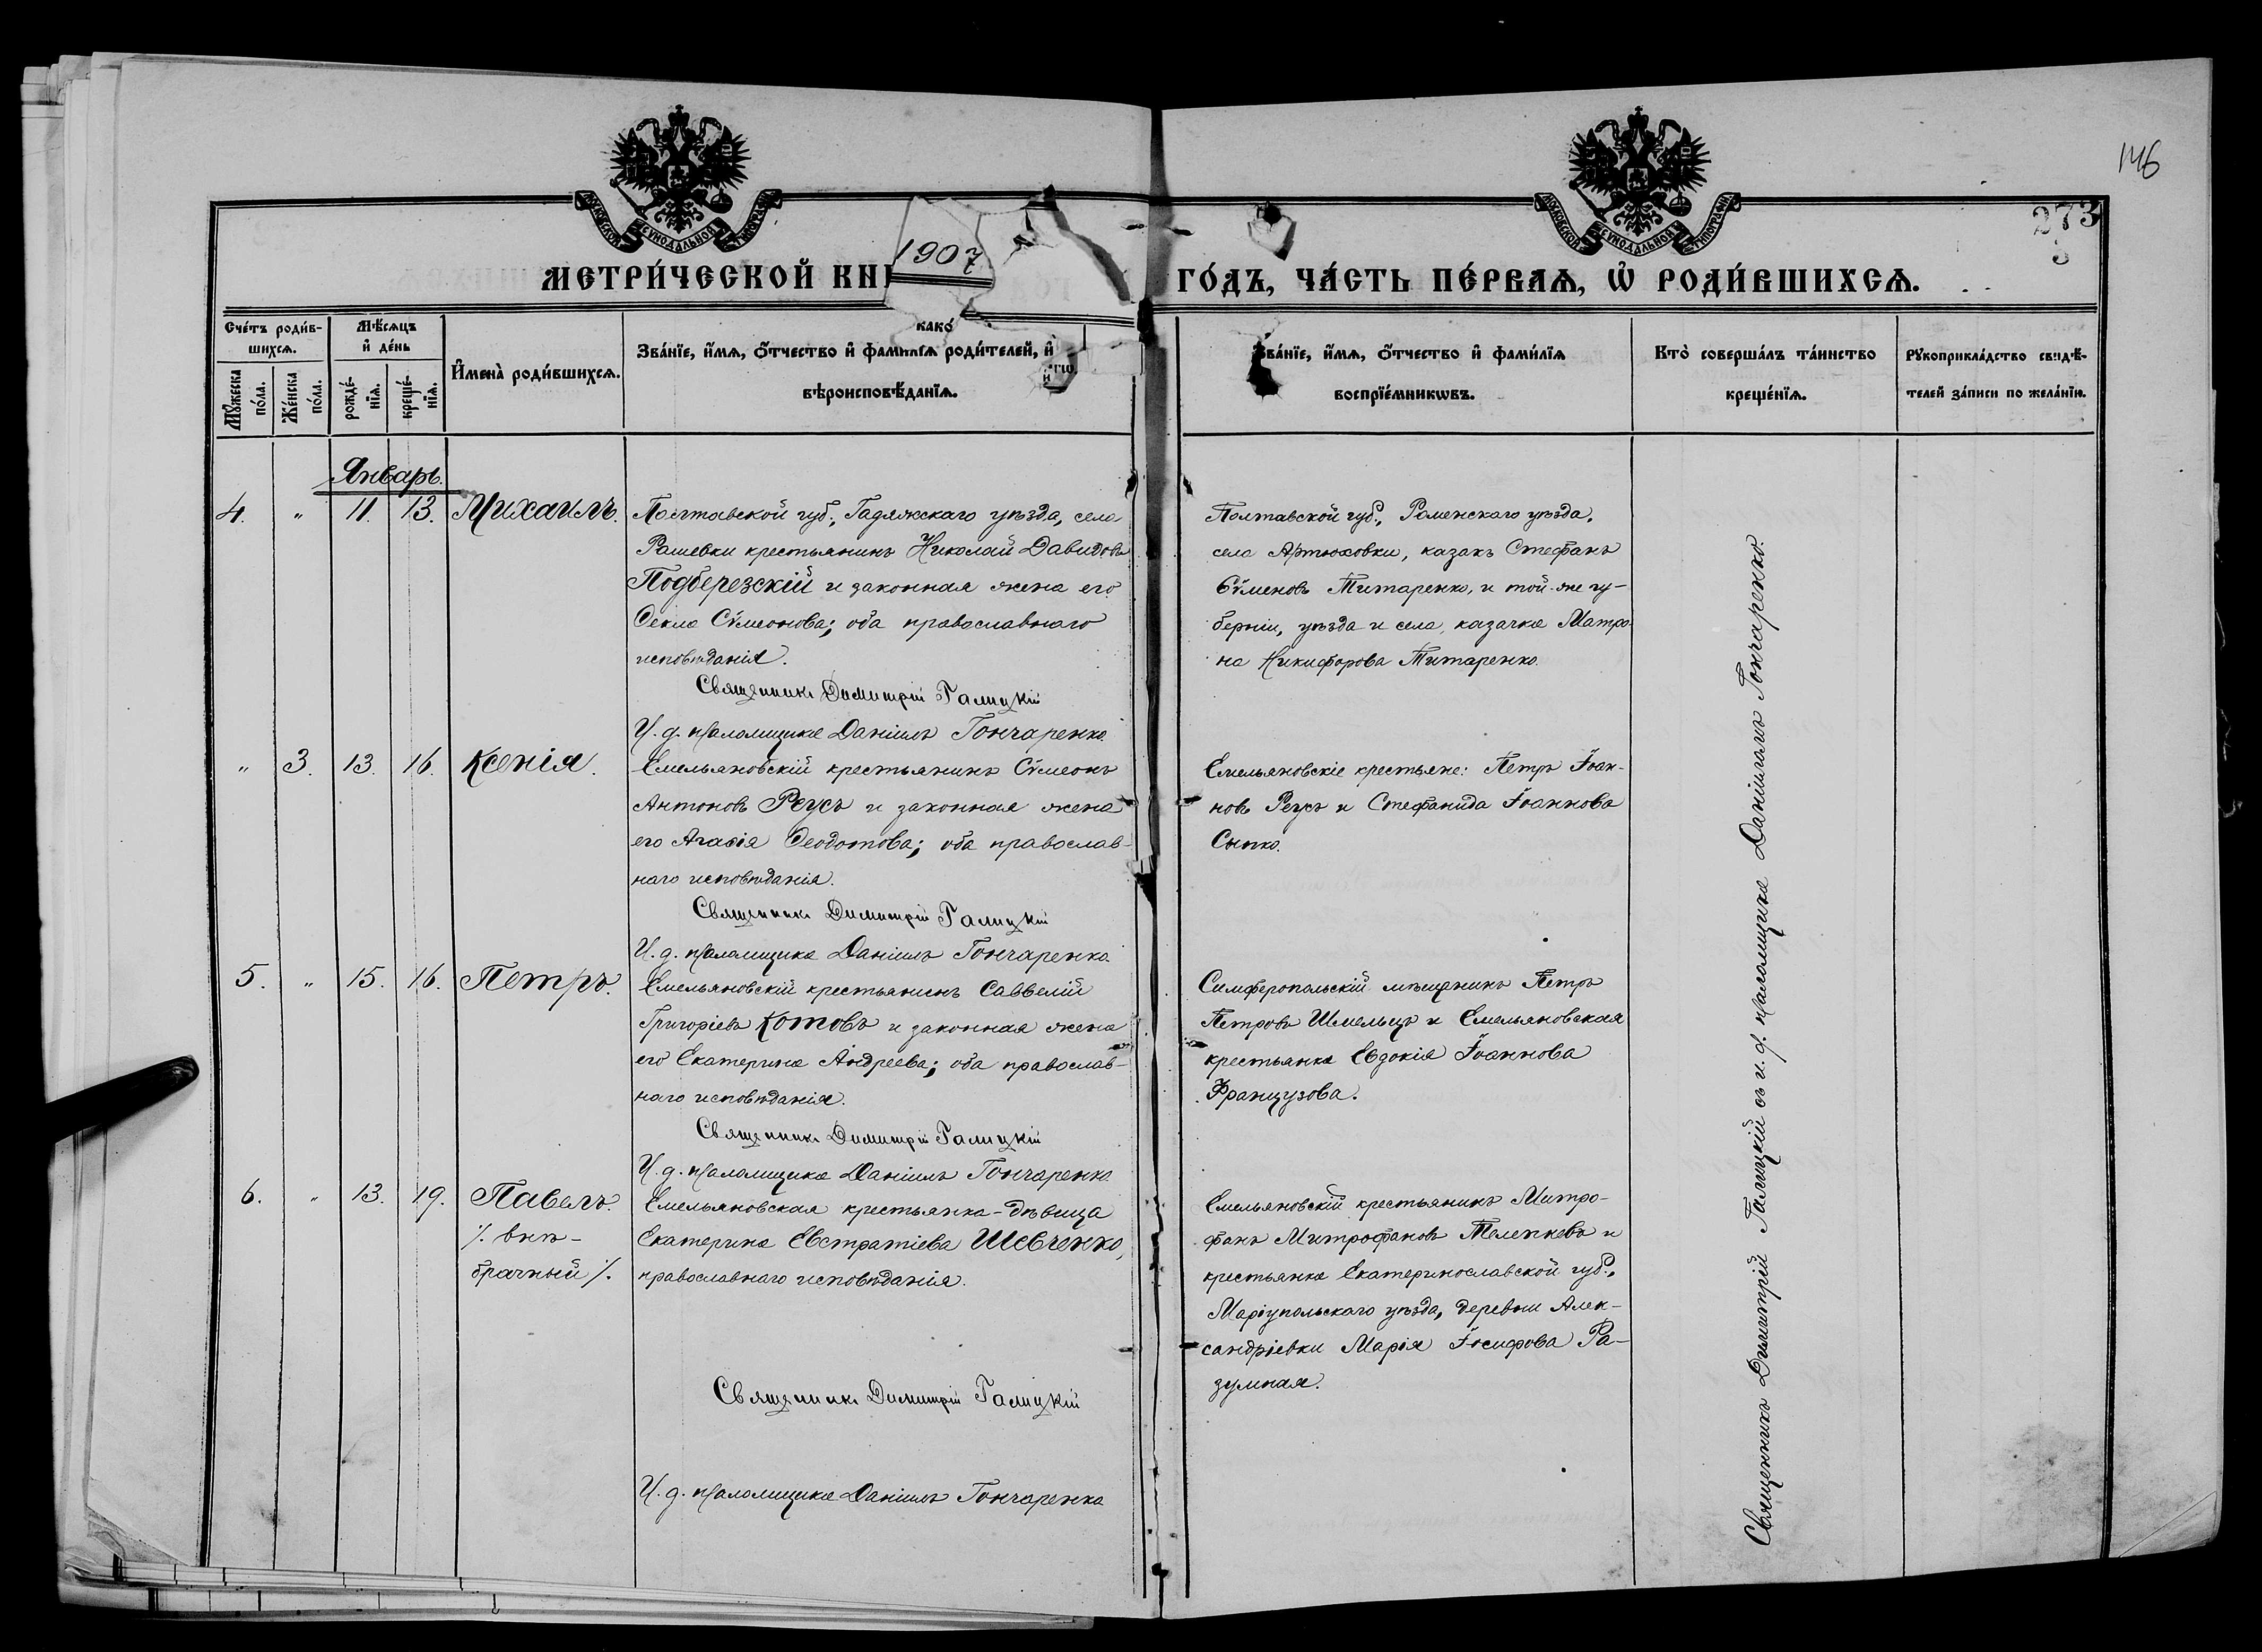 146
273
3
МОСКОВСКОЙ СѴНОДАЛЬНОЙ ТИПОГРАФІИ
МОСКОВСКОЙ СѴНОДАЛЬНОЙ ТИПОГРАФІИ
МЕТРИ́ЧЕСКОЙ КНИ 1907 ГО́ДЪ, ЧА́СТЬ ПЕ́РВАѦ, Ѡ҆ РОДИ́ВШИХСѦ.
Сче́тъ роди́в-
шихсѧ.
Мѣ́сѧцъ
и҆ де́нь
Мꙋ́жеска по́ла.
Же́нска по́ла.
рожде́-нїѧ.
креще́-нїѧ.
И҆мена̀ роди́вшихсѧ.
Зва́нїе, и҆́мѧ, ѻ҆́тчество и҆ фами́лїѧ роди́телей, и҆ како́
вѣроисповѣ́данїѧ.
Зва́нїе, и҆́мѧ, ѻ҆́тчество и҆ фами́лїѧ
воспрїе́мникѡвъ.
Кто̀ соверша́лъ та́инство
креще́нїѧ.
Рꙋкоприкла́дство свидѣ́-
телей за́писи по жела́нїю.
Январь.
4. " 11. 13. Михаилъ.
Полтавской губ., Гадяжскаго уѣзда, села
Рашевки крестьянинъ Николай Давидовъ
Подберезскій и законная жена его
Ѳекла Сѵмеонова; оба православнаго
исповѣданія.
Священникъ Димитрій Галицкій
И. д. псаломщика Даніилъ Гончаренко.
Полтавской губ., Роменскаго уѣзда,
села Артюховки, казакъ Стефанъ
Сѵменовъ Титаренко, и той-же гу-
берніи, уѣзда и села, казачка Матро-
на Никифорова Титаренко.
" 3. 13. 16. Ксенія.
Емельяновскій крестьянинъ Сѵмеонъ
Антоновъ Реусъ и законная жена
его Агаѳія Ѳеодотова; оба православ-
наго исповѣданія.
Священникъ Димитрій Галицкій
И. д. псаломщика Даніилъ Гончаренко.
Емельяновскіе крестьяне: Петръ Іоан-
новъ Реусъ и Стефанида Іоаннова
Сыпко.
5. " 15. 16. Петръ.
Емельяновскій крестьянинъ Саввелій
Григоріевъ Котовъ и законная жена
его Екатерина Андреева; оба православ-
наго исповѣданія.
Священникъ Димитрій Галицкій
И. д. псаломщика Даніилъ Гончаренко.
Симферопольскій мѣщанинъ Петръ
Петровъ Шмельцъ и Емельяновская
крестьянка Евдокія Іоаннова
Французова.
6. " 13. 19. Павелъ.
/. внѣ-
брачный /.
Емельяновская крестьянка-дѣвица
Екатерина Евстратіева Шевченко,
православнаго исповѣданія.
Священникъ Димитрій Галицкій
И. д. псаломщика Даніилъ Гончаренко
Емельяновскій крестьянинъ Митро-
фанъ Митрофановъ Телепневъ и
крестьянка Екатеринославской губ.,
Маріупольскаго уѣзда, деревни Алек-
сандріевки Марія Іосифова Ра-
зумная.
Священникъ Димитрій Галицкій съ и. д. псаломщика Даніиломъ Гончаренко.